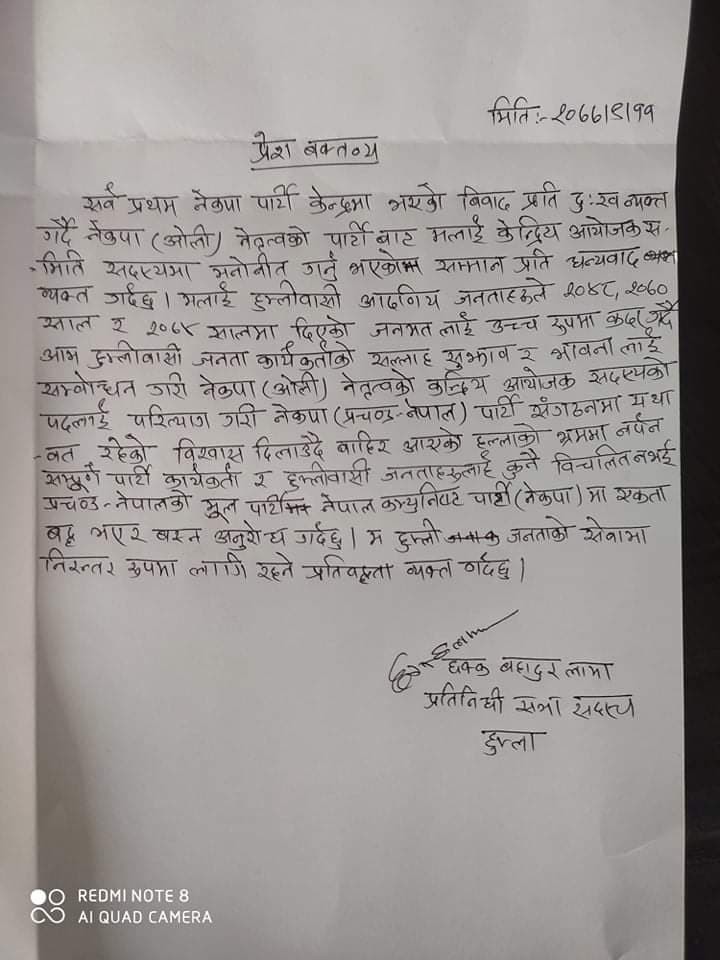 मिति:- २०७७।९।११
प्रेश बक्तव्य
सर्व प्रथम नेकपा पार्टी केन्द्रमा भएको बिवाद प्रति दुःख व्यक्त
गर्दै नेकपा (ओली) नेतृत्वको पार्टी बाट मलाई केन्द्रिय आयोजक स-
-मिति सदस्यमा मनोनीत गर्नु भएकोमा सम्मान प्रति धन्यवाद
व्यक्त गर्दछु। मलाई हुम्लीवासी आदणिय जनताहरुले २०४८, २०७०
साल र २०७४ सालमा दिएको जनमत लाई उच्च रुपमा कदर गर्दै
आम हुम्लीवासी जनता कार्यकर्ताको सल्लाह सुझाव र भावना लाई
सम्वोन्धन गरी नेकपा (ओली) नेतृत्वको केन्द्रिय आयोजक सदस्यको
पदलाई परित्याग गरी नेकपा (प्रचण्ड-नेपाल) पार्टी संगठनमा यथा
-वत रहेको विश्वास दिलाउदै वाहिर आएको हल्लाको भ्रममा नर्पन
सम्पूर्ण पार्टी कार्यकर्ता र हुम्लीवासी जनताहरुलाई कुनै विचलित नभई
प्रचण्ड-नेपालको मूल पार्टी नेपाल कम्युनिष्ट पार्टी (नेकपा) मा एकता
बद्ध भएर बस्न अनुरोध गर्दछु। म हुम्ली जनताको सेवामा
निरन्तर रुपमा लागि रहने प्रतिवद्धता व्यक्त गर्दछु।
छक्क बहादुर लामा
प्रतिनिधी सभा सदस्य
हुम्ला
REDMI NOTE 8
AI QUAD CAMERA